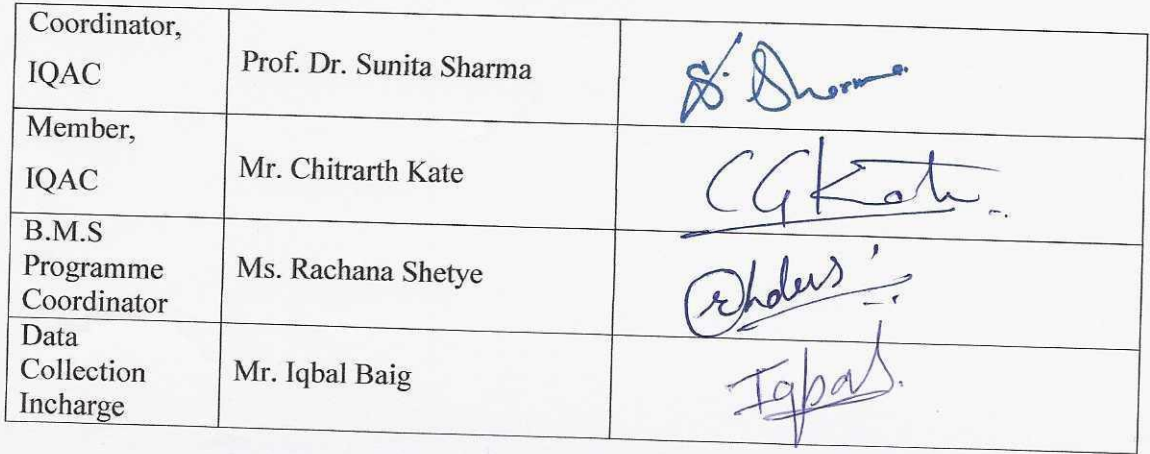 Coordinator,
IQAC
Prof. Dr. Sunita Sharma
S. Sharma
Member,
IQAC
Mr. Chitrarth Kate
CGKate
B.M.S
Programme
Coordinator
Ms. Rachana Shetye
Data
Collection
Incharge
Mr. Iqbal Baig
Iqbal